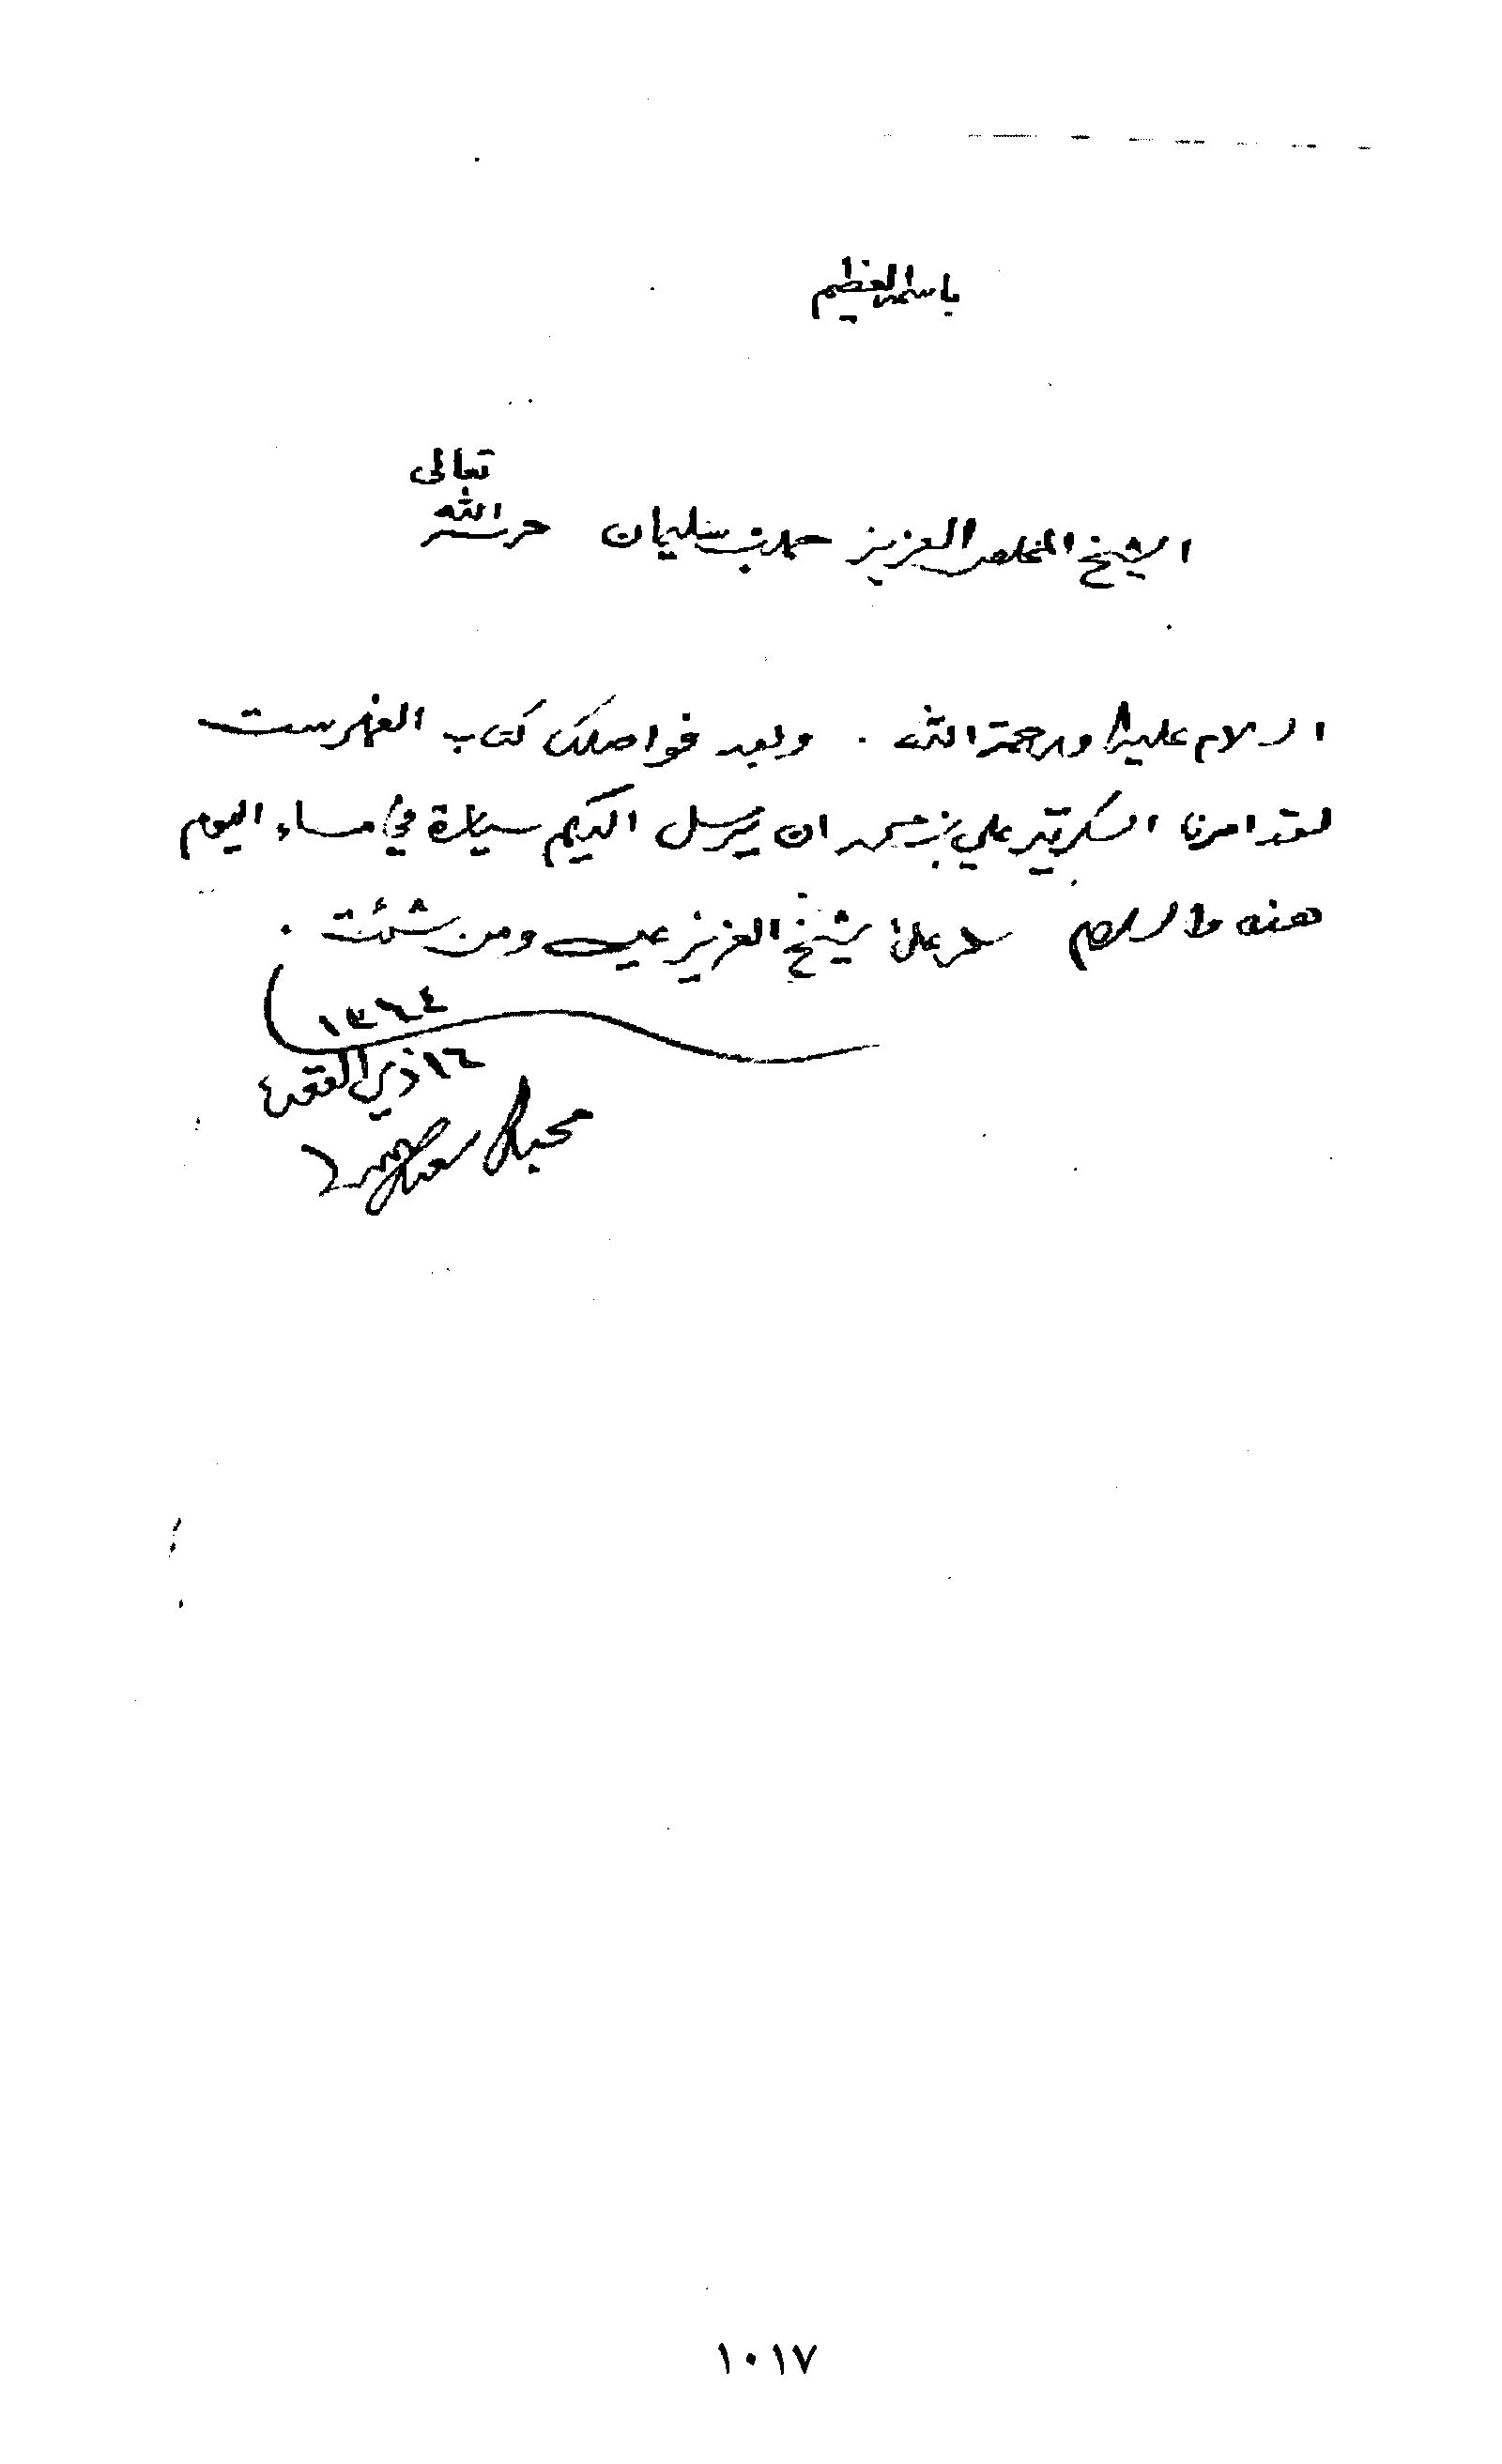 باسمه العظيم
الشيخ المخلص العزيز حمد بن سليمان حرسه الله تعالى
السلام عليك ورحمة الله . وبعد فواصلك كتاب الفهرست
لقد امرنا السكرتير علي بن محمد ان يرسل اليكم سيارة في مساء اليوم
هذه والسلام سلم علي شيخ العزيز عيسى ومن شئت .
١٣٦٤
١٦ ذي القعدة
محبك سعيد
١٠١٧